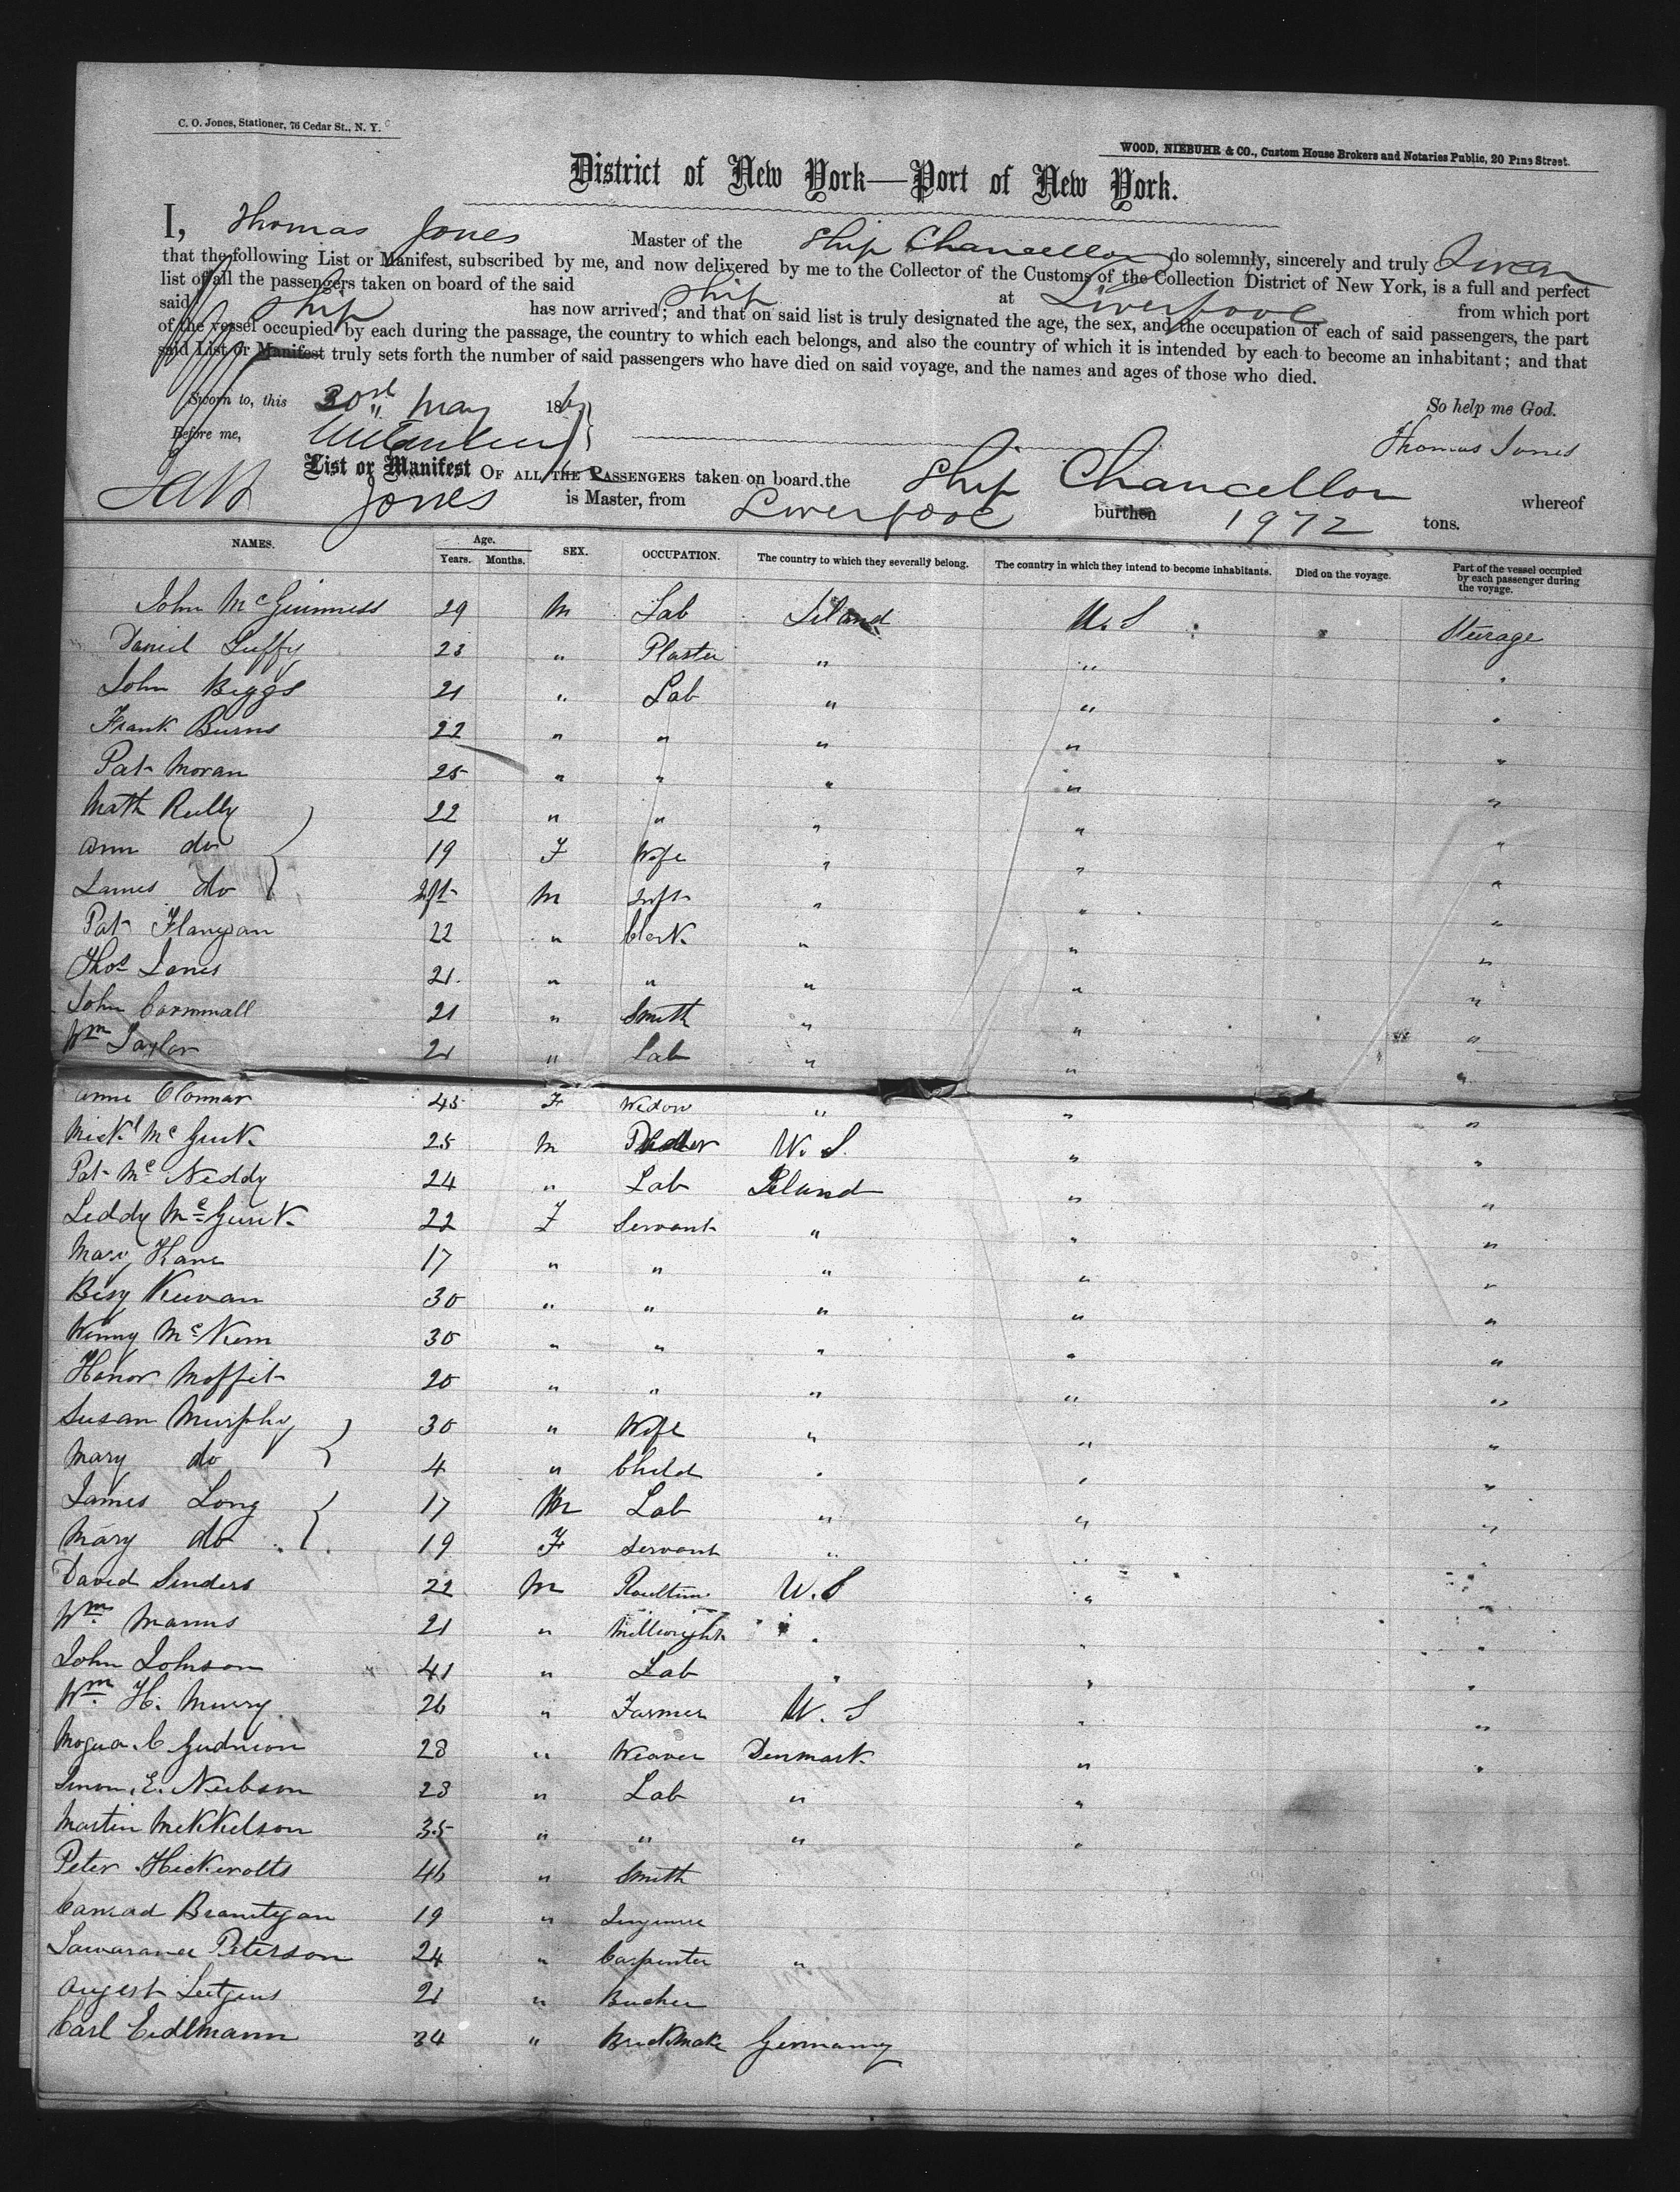 C. O. Jones, Stationer, 76 Cedar St., N. Y.
WOOD, NIEBUHR & CO., Custom House Brokers and Notaries Public, 20 Pine Street.
District of New York—Port of New York.
I, Thomas Jones Master of the Ship Chancellor do solemnly, sincerely and truly Swear
that the following List or Manifest, subscribed by me, and now delivered by me to the Collector of the Customs of the Collection District of New York, is a full and perfect
list of all the passengers taken on board of the said Ship at Liverpool from which port
said Ship has now arrived; and that on said list is truly designated the age, the sex, and the occupation of each of said passengers, the part
of the vessel occupied by each during the passage, the country to which each belongs, and also the country of which it is intended by each to become an inhabitant; and that
said List or Manifest truly sets forth the number of said passengers who have died on said voyage, and the names and ages of those who died.
Sworn to, this May 186 So help me God.
Before me, Thomas Jones
List or Manifest OF ALL THE PASSENGERS taken on board the Ship Chancellor whereof
Jones is Master, from Liverpool burthen 1972 tons.
NAMES. Age. Years. Months. SEX. OCCUPATION. The country to which they severally belong. The country in which they intend to become inhabitants. Died on the voyage. Part of the vessel occupied by each passenger during the voyage.
John McGuinness 29 M Lab Ireland U.S Steerage
Daniel 23 " Plaster " "
John Biggs 21 " Lab " " "
Frank Burns 22 " " " " "
Pat Moran 25 " " " " "
Math Reilly 22 " " " " "
Ann do 19 F Wife " " "
James do M Inft " " "
Pat Flanegan 22 " Clerk " " "
Thos Jones 21 " " " " "
John Cornwall 21 " Smith " " "
Wm Taylor 21 " Lab " " "
Anne OConnar 45 F Widow " " "
Mick McGurk 25 M U.S. " "
Pat McNeddy 24 " Lab Ireland " "
McGurk 22 F Servant " " "
Mary Kane 17 " " " " "
Besy Keevan 30 " " " " "
Winny 30 " " " " "
Honor Moffit 20 " " " " "
Susan Murphy 30 " Wife " " "
Mary do 4 " Child " " "
James Long 17 M Lab " " "
Mary do 19 F Servant " " "
David Sinders 22 M U.S " "
Wm Manns 21 " Millwright " " "
John Johnson 41 " Lab " " "
Wm H. 26 " Farmer U.S " "
28 " Weaver Denmark " "
28 " Lab " "
Martin Mekkelson 35 " " " "
Peter 46 " Smith
19 "
Peterson 24 " Carpenter "
August 21 "
Carl Eidlmann 34 " Brickmake Germany